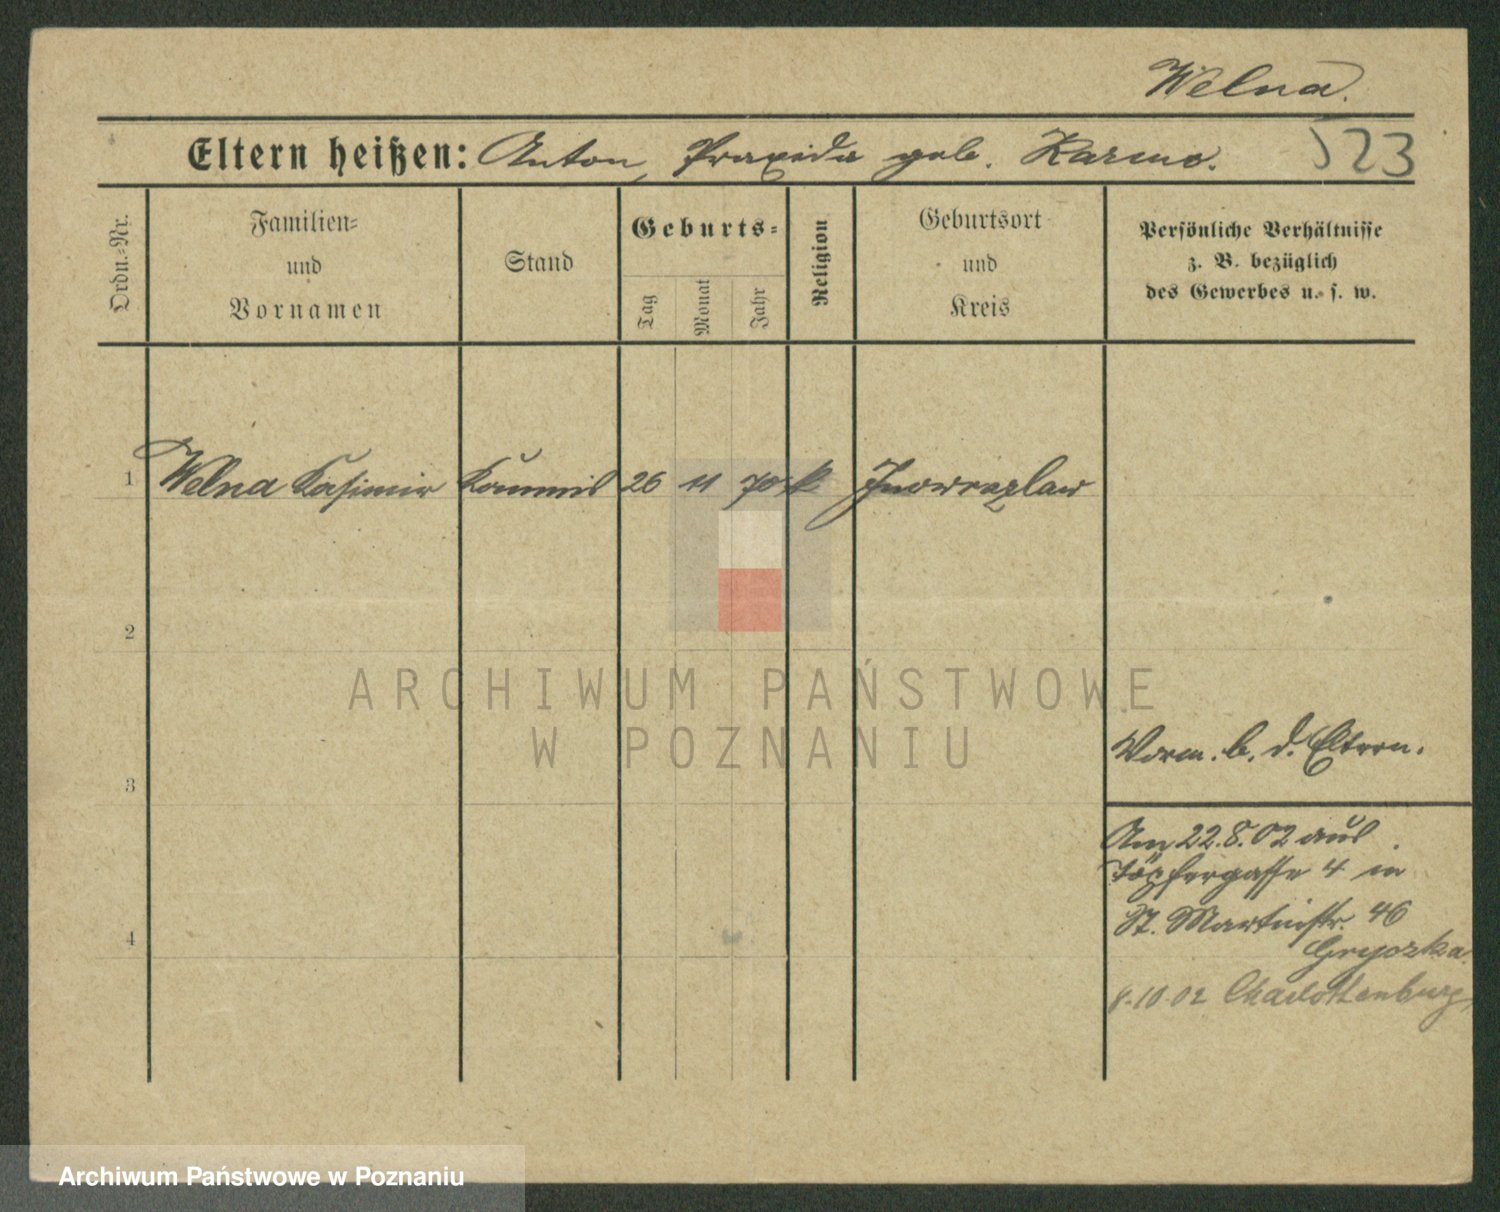 Welna.
Eltern heißen: Anton, Praxeda geb. Karmo.
523
Ordn.=Nr.
Familien=
und
Vornamen
Stand
Geburts=
Tag
Monat
Jahr
Religion
Geburtsort
und
Kreis
Persönliche Verhältnisse
z. B. bezüglich
des Gewerbes u. s. w.
1 Welna Kasimir Kommis 26 11 70 k Inowrazlaw
2
3
4
Vorm. b. d. Eltern.
Am 22.8.02 aus
Töpfergasse 4 in
St. Martinstr. 46
Gryczka.
8.10.02 Charlottenburg
ARCHIWUM PAŃSTWOWE
W POZNANIU
Archiwum Państwowe w Poznaniu